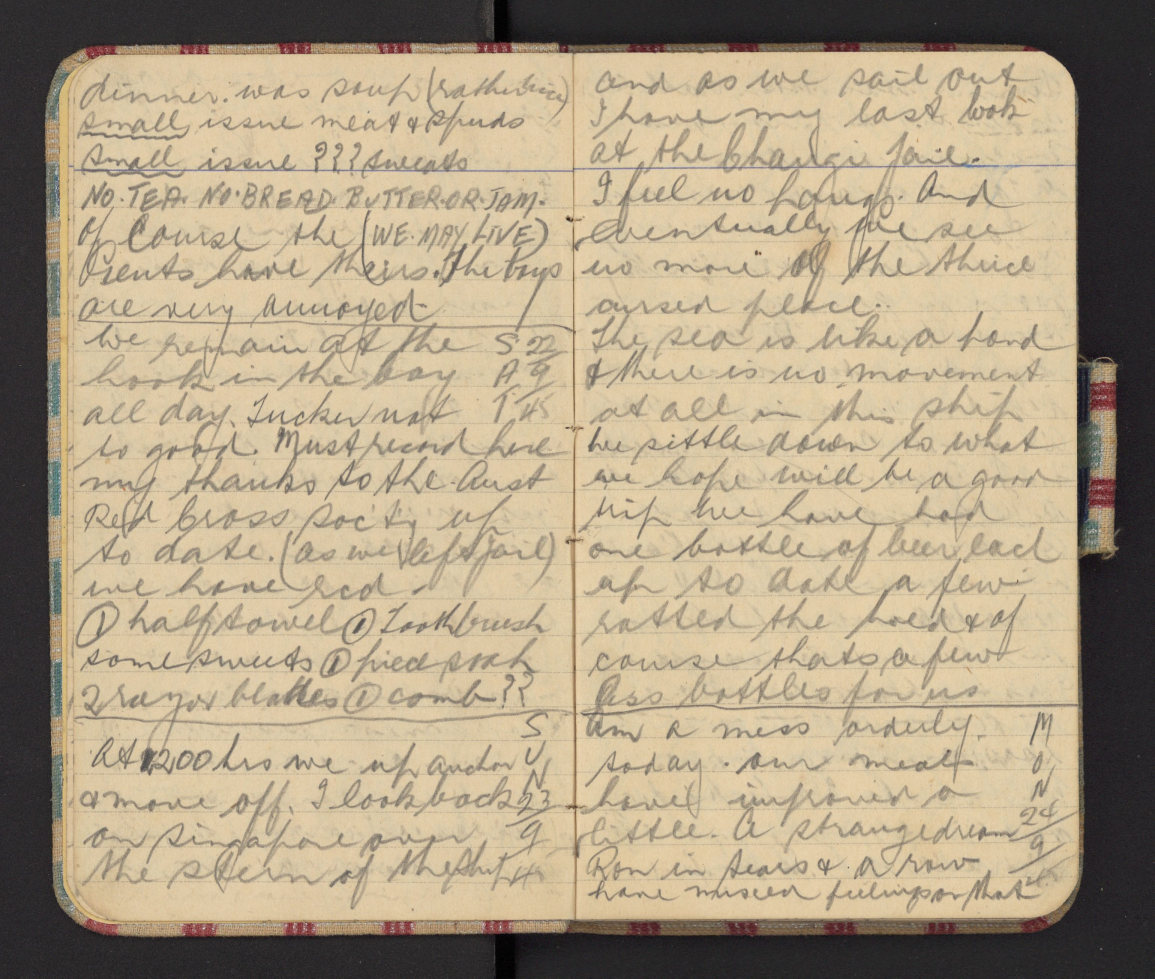 dinner. was soup (rather nice)
small issue meat & spuds
small issue ??? sweats
NO. TEA. NO. BREAD. BUTTER. OR. JAM.
Of Course the (WE. MAY LIVE)
have theirs. The boys
are very annoyed
We remain at the S 22
hook in the bay A 9
all day. Tucker not T 45
to good. Must record here
my thanks to the Aust
Red Cross Socty up
to date. (as we left jail)
we have rcd
① half towel ① Toothbrush
some sweets ① piece soap
2 rayor blades ① comb ??
S
At 1200 hrs we up anchor U
& move off. I look back N 23
on Singapore over 9
the stern of the ship 45
and as we sail out
I have my last look
at the Changi Jail.
I feel no pangs. And
eventually we see
no more of the thrice
cursed place.
The sea is like a pond
& there is no movement
at all in this ship
We sittle down to what
we hope will be a good
trip We have had
one bottle of beer each
up to date a few
ratted the hold & of
course thats a few
less bottles for us
Am a mess orderly. M
today. our meals O
have improved a N
little. A strange dream 24
Ron in tears & a row 9
have missed feelings on that 45